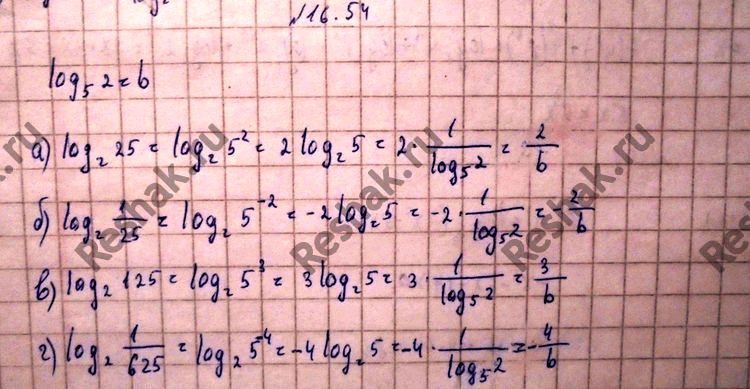 №16.54
log₅2=b
а) log₂25 = log₂5² = 2log₂5 = 2·1/log₅2 = 2/b
б) log₂ 1/25 = log₂5⁻² = -2log₂5 = -2·1/log₅2 = 2/b
в) log₂125 = log₂5³ = 3log₂5 = 3·1/log₅2 = 3/b
г) log₂ 1/625 = log₂5⁻⁴ = -4log₂5 = -4·1/log₅2 = -4/b
Reshak.ru
Reshak.ru
Reshak.ru